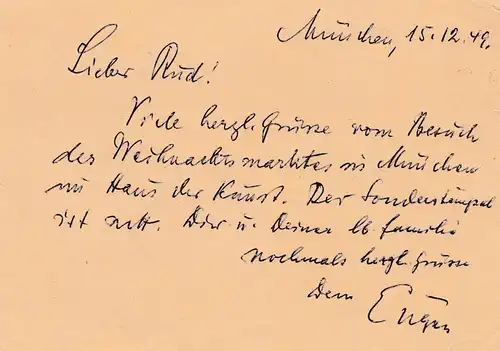 München, 15.12.49.
Lieber Rud!
Viele herzl. Grüsse vom Besuch
des Weihnachtsmarktes in München
im Haus der Kunst. Der Sonderstempel
ist nett. Dir u. Deiner lb. Familie
nochmals herzl. Grüsse
Dein Eugen